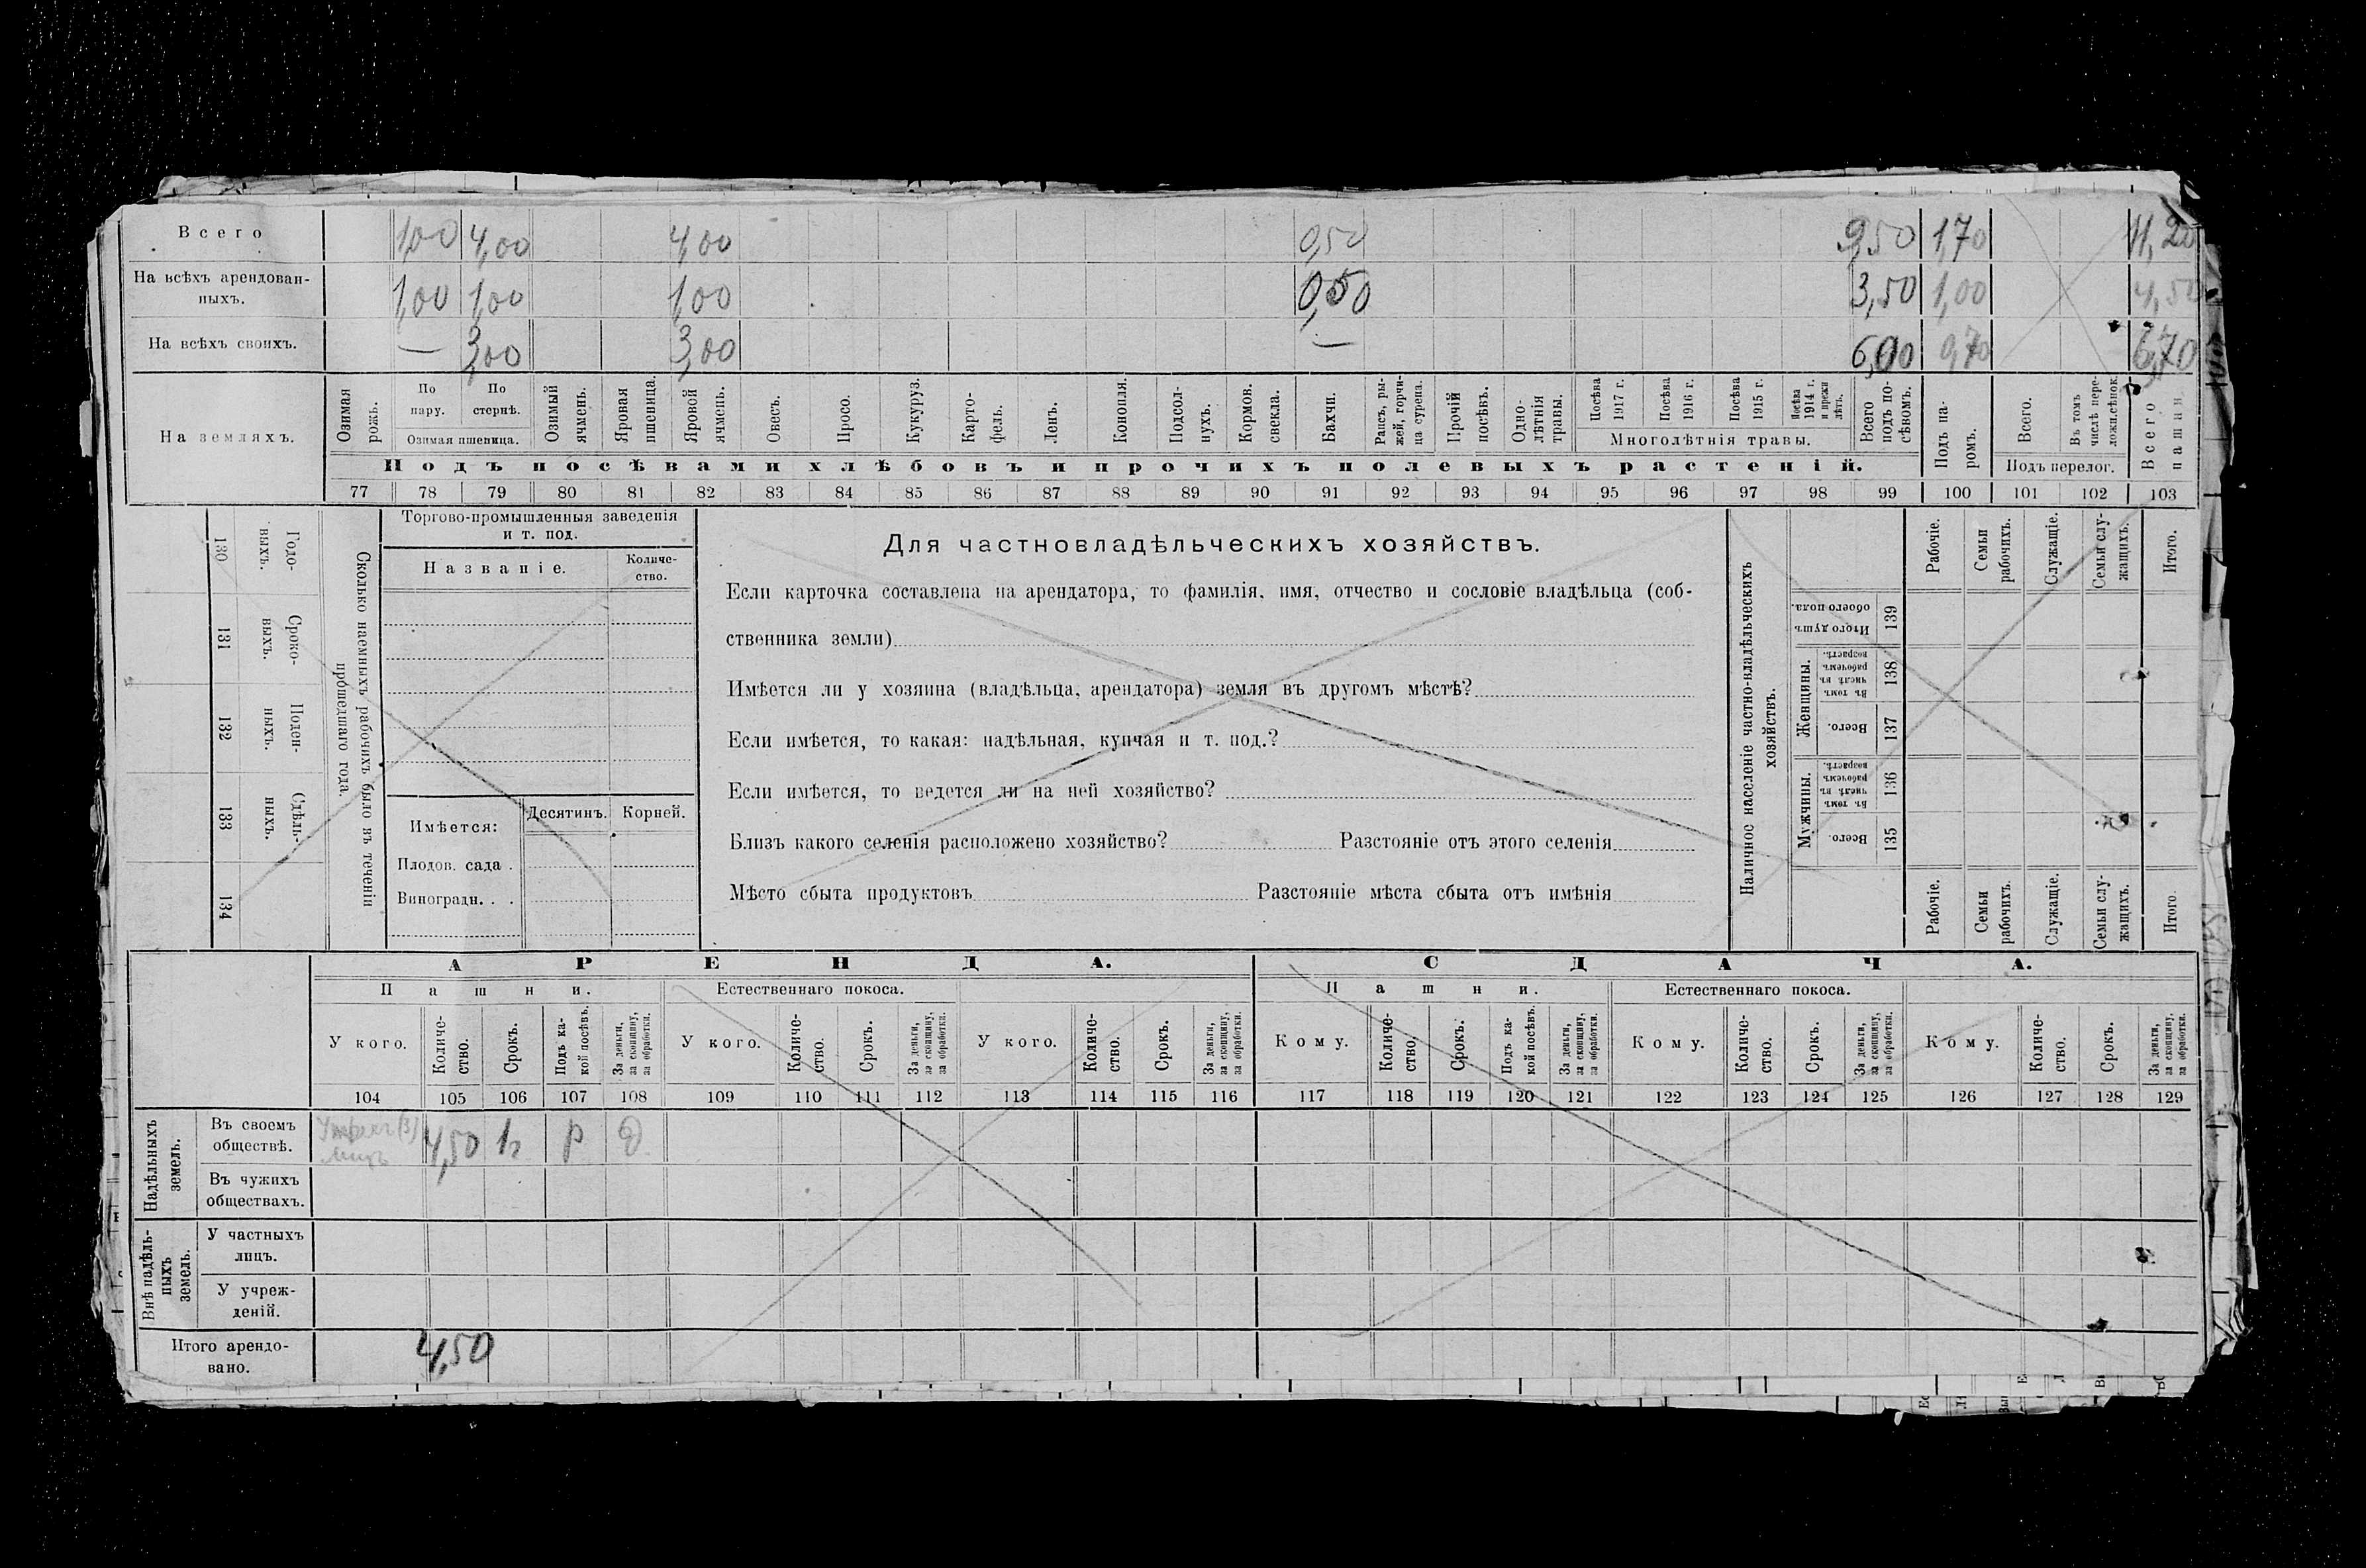 Всего 1,00 4,00 4,00 0,50 9,50 1,70 11,20
На всѣхъ арендован-
ныхъ. 1,00 1,00 1,00 0,50 3,50 1,00 4,50
На всѣхъ своихъ. — 3,00 3,00 — 6,00 0,70 6,70
На земляхъ.
Озимая рожь.
По пару.
По стернѣ.
Озимая пшеница.
Озимый ячмень.
Яровая пшеница.
Яровой ячмень.
Овесъ.
Просо.
Кукуруз.
Карто-
фель.
Ленъ.
Конопля.
Подсол-
нухъ.
Кормов.
свекла.
Бахчи.
Рапсъ, ры-
жей, горчи-
ца сурепа.
Прочій
посѣвъ.
Одно-
лѣтнія
травы.
Посѣва
1917 г.
Посѣва
1916 г.
Посѣва
1915 г.
Посѣва
1914 г.
и прежн
лѣтъ.
Многолѣтнія травы.
Всего
подъ по-
сѣвомъ.
Подъ посѣвами хлѣбовъ и прочихъ полевыхъ растеній.
Подъ па-
ромъ.
Всего.
Въ томъ
числѣ пере-
ложн.сѣнок.
Подъ перелог.
Всего
пашни.
77 78 79 80 81 82 83 84 85 86 87 88 89 90 91 92 93 94 95 96 97 98 99 100 101 102 103
Сколько наемныхъ рабочихъ было въ теченіи
прошедшаго года.
Годо-
выхъ.
130
Сроко-
выхъ.
131
Поден-
ныхъ.
132
Сдѣль-
ныхъ.
133
134
Торгово-промышленныя заведенія
и т. под.
Названіе.
Количе-
ство.
Имѣется:
Десятинъ.
Корней.
Плодов. сада .
Виноградн. . .
Для частновладѣльческихъ хозяйствъ.
Если карточка составлена на арендатора, то фамилія, имя, отчество и сословіе владѣльца (соб-
ственника земли)
Имѣется ли у хозяина (владѣльца, арендатора) земля въ другомъ мѣстѣ?
Если имѣется, то какая: надѣльная, купчая и т. под.?
Если имѣется, то ведется ли на ней хозяйство?
Близъ какого селенія расположено хозяйство? Разстояніе отъ этого селенія
Мѣсто сбыта продуктовъ Разстояніе мѣста сбыта отъ имѣнія
Наличное населеніе частно-владѣльческихъ
хозяйствъ.
Рабочіе.
Семьи
рабочихъ.
Служащіе.
Семьи слу-
жащихъ.
Итого.
Итого душъ
обоего пола.
139
Женщины.
Въ томъ
числѣ въ
рабочемъ
возрастѣ.
138
Всего.
137
Мужчины.
Въ томъ
числѣ въ
рабочемъ
возрастѣ.
136
Всего.
135
Рабочіе.
Семьи
рабочихъ.
Служащіе.
Семьи слу-
жащихъ.
Итого
АРЕНДА. СДАЧА.
Пашни. Естественнаго покоса. Пашни. Естественнаго покоса.
У кого.
Количе-
ство.
Срокъ.
Подъ ка-
кой посѣвъ.
За деньги,
за скопщину,
за обработки.
У кого.
Количе-
ство.
Срокъ.
За деньги,
за скопщину,
за обработки.
У кого.
Количе-
ство.
Срокъ.
За деньги,
за скопщину,
за обработки.
Кому.
Количе-
ство.
Срокъ.
Подъ ка-
кой посѣвъ.
За деньги,
за скопщину,
за обработки.
Кому.
Количе-
ство.
Срокъ.
За деньги,
за скопщину,
за обработки.
Кому.
Количе-
ство.
Срокъ.
За деньги,
за скопщину,
за обработки.
104 105 106 107 108 109 110 111 112 113 114 115 116 117 118 119 120 121 122 123 124 125 126 127 128 129
Надѣльныхъ
земель.
Въ своемъ
обществѣ. 4,50
Въ чужихъ
обществахъ.
Внѣ надѣль-
ныхъ
земель.
У частныхъ
лицъ.
У учреж-
деній.
Итого арендо-
вано. 4,50